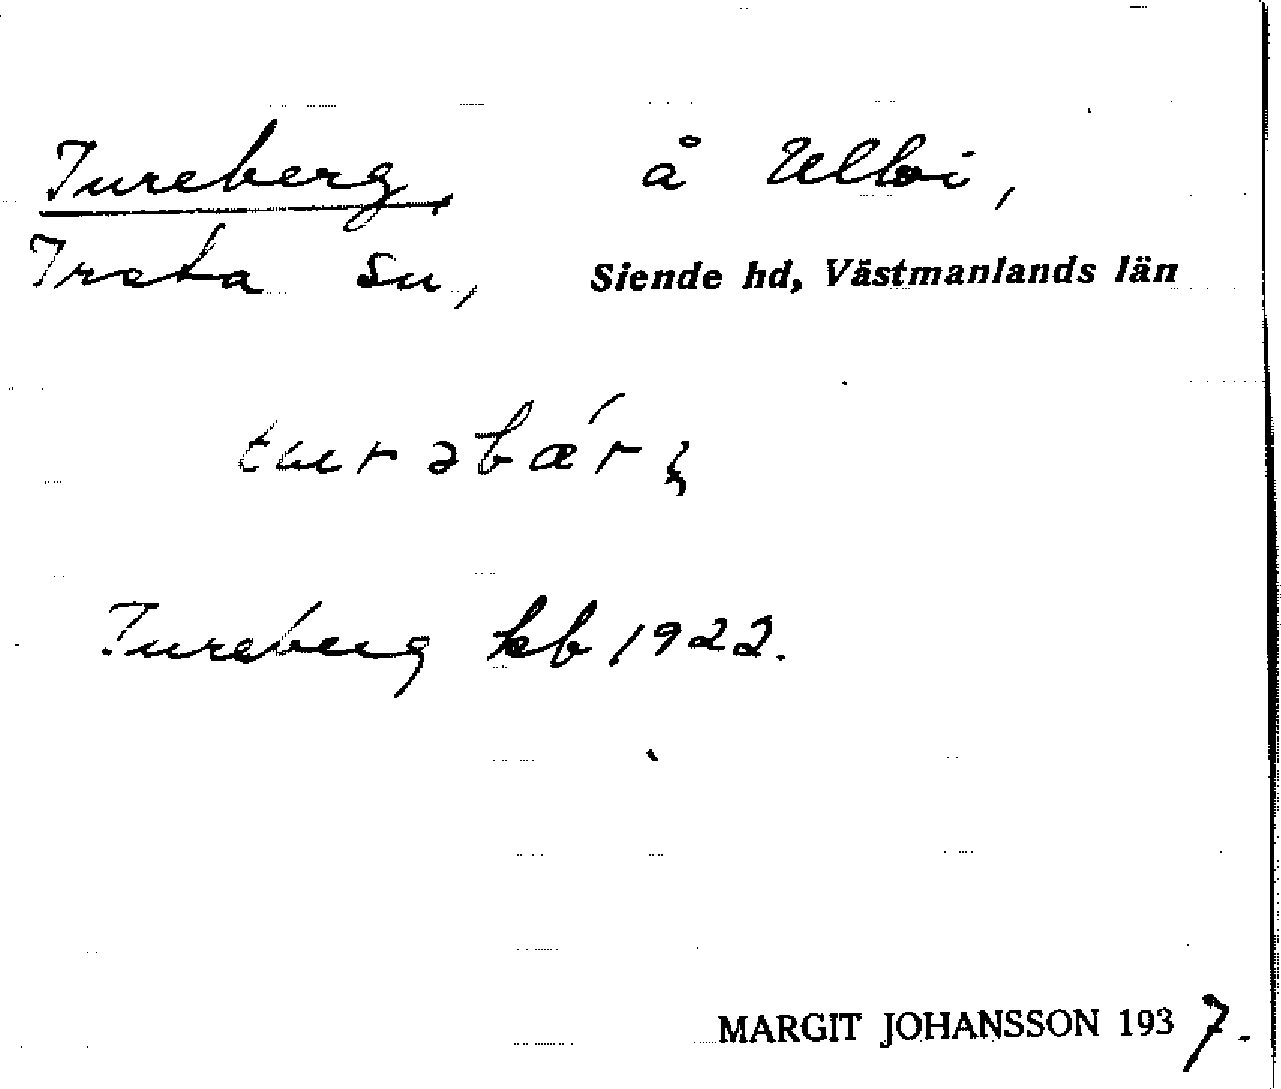 Tureberg, å Ullvi,
Irsta sn, Siende hd, Västmanlands län
Tureberg kb 1922.
MARGIT JOHANSSON 1937.